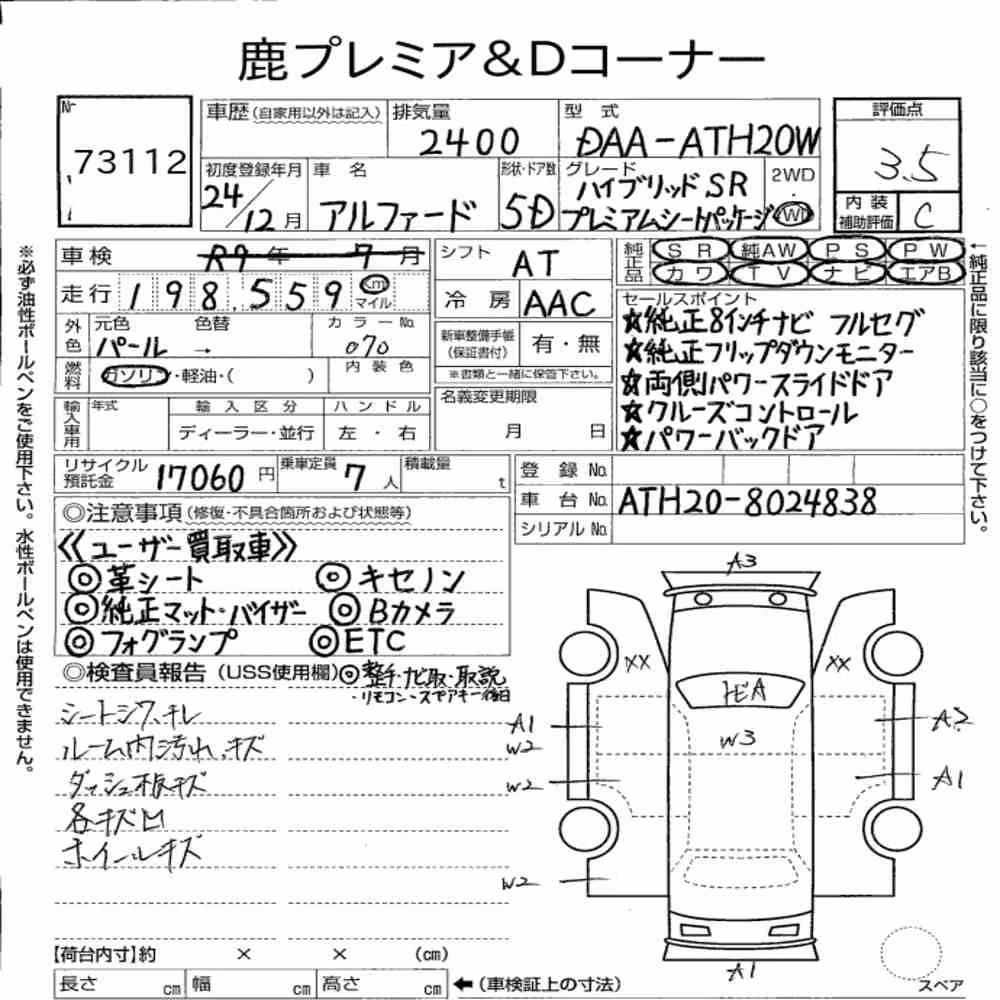 鹿プレミア&Dコーナー
Nr 73112
車歴(自家用以外は記入) 排気量 2400 型式 DAA-ATH20W
初度登録年月 24/12月 車名 アルファード 形状・ドア数 5D グレード ハイブリッドSR プレミアムシートパッケージ 2WD・4WD
評価点 3.5
内装補助評価 C
車検 R9年 7月
走行 198,559 km マイル
シフト AT
冷房 AAC
純正品 SR 純AW PS PW
カワ TV ナビ エアB
外色 元色 パール 色替 → カラーNo. 070
燃料 ガソリン・軽油・( ) 内装色
新車整備手帳(保証書付) 有・無
※書類と一緒に保管下さい。
セールスポイント
☆純正8インチナビ フルセグ
☆純正フリップダウンモニター
☆両側パワースライドドア
☆クルーズコントロール
☆パワーバックドア
輸入車用 年式 輸入区分 ディーラー・並行 ハンドル 左・右
名義変更期限 月 日
リサイクル預託金 17060円 乗車定員 7人 積載量 t
登録No.
車台No. ATH20-8024838
シリアルNo.
◎注意事項(修復・不具合箇所および状態等)
《ユーザー買取車》
◎革シート ◎キセノン
◎純正マット・バイザー ◎Bカメラ
◎フォグランプ ◎ETC
◎検査員報告(USS使用欄) ◎整手・ナビ取・取説
・リモコン・スペアキー後日
シートシワ、キレ
ルーム内汚れ、キズ
ダッシュ板キズ
各キズ凹
ホイールキズ
A3
XX XX
トビA
A1 W2 W3 A2
W2 A1
W2
A1
スペア
【荷台内寸】約 × × (cm)
長さ cm 幅 cm 高さ cm ←(車検証上の寸法)
※必ず油性ボールペンをご使用下さい。水性ボールペンは使用できません。
←純正品に限り該当に○をつけて下さい。